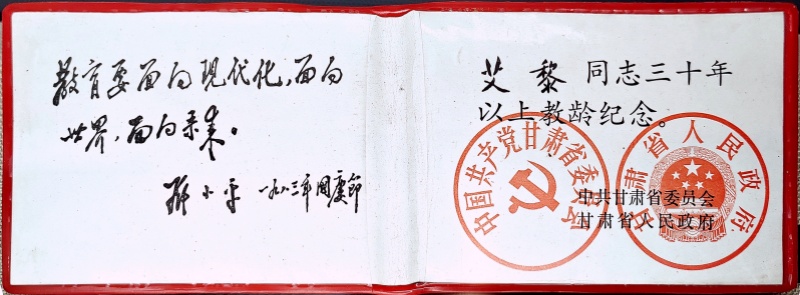 教育要面向现代化，面向
世界，面向未来。
邓小平 一九八三年国庆节
艾黎 同志三十年
以上教龄纪念。
中国共产党甘肃省委员会
甘肃省人民政府
中共甘肃省委员会
甘肃省人民政府